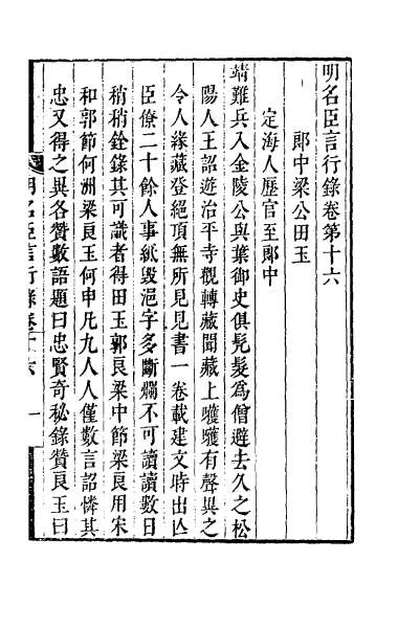 明名臣言行錄卷第十六
郞中梁公田玉
定海人歷官至郞中
靖難兵入金陵公與葉御史俱髡髮爲僧避去久之松
陽人王詔遊治平寺觀轉藏聞藏上嚄嚄有聲異之
令人緣藏登絕頂無所見見書一卷載建文時出亾
臣僚二十餘人事紙毀浥字多斷爛不可讀讀數日
稍稍銓錄其可識者得田玉郭良梁中節梁良用宋
和郭節何洲梁良玉何申凡九人人僅數言詔憐其
忠又得之異各贊數語題曰忠賢奇秘錄贊良玉曰
明名臣言行錄卷十六
一